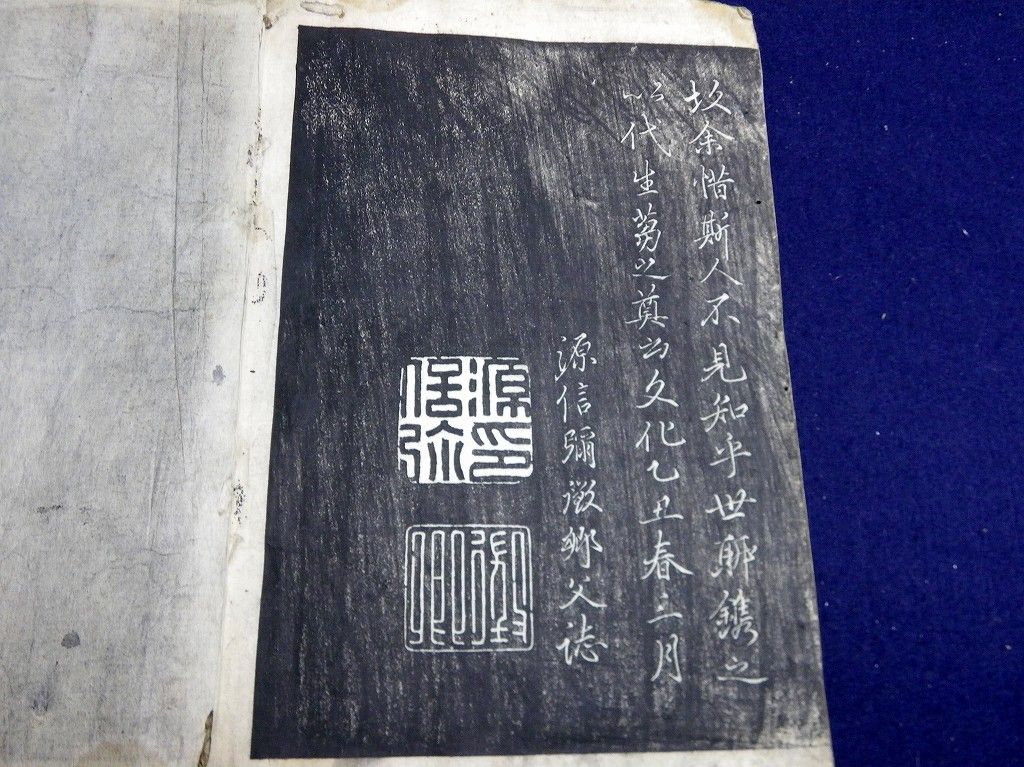 故余惜斯人不見知乎世聊鐫之
以代生芻之奠云文化乙丑春三月
源信彌徵卿父誌
源印
信弥